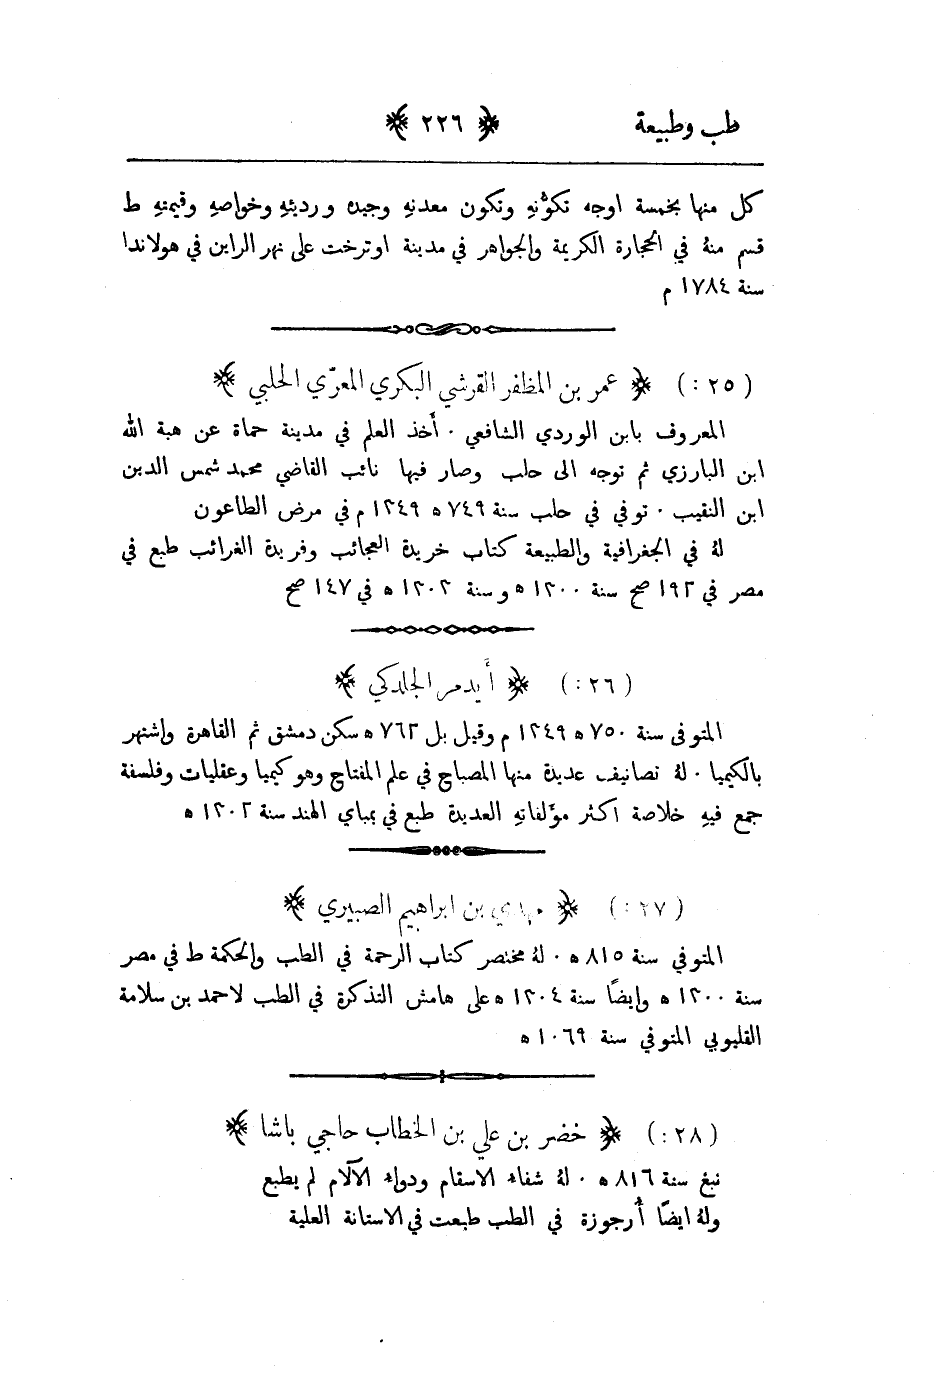 طب وطبيعة ﴿ ٢٢٦ ﴾
كل منها بخمسة اوجه تكوُّنهِ وتكون معدنهِ وجيده ورديئهِ وخواصهِ وقيمتهِ ط
قسم منهُ في الحجارة الكريمة والجواهر في مدينة اوترخت على نهر الراين في هولاندا
سنة ١٧٨٤ م
(٢٥:) ﴿ عمر بن المظفر القرشي البكري المعرّي الحلبي ﴾
المعروف بابن الوردي الشافعي · أَخذ العلم في مدينة حماة عن هبة الله
ابن البارزي ثم توجه الى حلب وصار فيها نائب القاضي محمد شمس الدين
ابن النقيب · توفي في حلب سنة ٧٤٩ ه ١٣٤٩ م في مرض الطاعون
لهُ في الجغرافية والطبيعة كتاب خريدة العجائب وفريدة الغرائب طبع في
مصر في ١٩٢ صح سنة ١٣٠٠ ه وسنة ١٣٠٢ ه في ١٤٧ صح
(٢٦:) ﴿ أَيدمر الجلدكي ﴾
المتوفى سنة ٧٥٠ ه ١٣٤٩ م وقيل بل ٧٦٢ ه سكن دمشق ثم القاهرة واشتهر
بالكيميا · لهُ تصانيف عديدة منها المصباح في علم المفتاح وهو كيميا وعقليات وفلسفة
جمع فيهِ خلاصة اكثر مؤَلفاتهِ العديدة طبع في بمباي الهند سنة ١٣٠٢ ه
(٢٧:) ﴿ مهدي بن ابراهيم الصبيري ﴾
المتوفي سنة ٨١٥ ه · لهُ مختصر كتاب الرحمة في الطب والحكمة ط في مصر
سنة ١٣٠٠ ه وايضًا سنة ١٣٠٤ ه على هامش التذكرة في الطب لاحمد بن سلامة
القليوبي المتوفي سنة ١٠٦٩ ه
(٢٨:) ﴿ خضر بن علي بن الخطاب حاجي باشا ﴾
نبغ سنة ٨١٦ ه · لهُ شفاء الاسقام ودواء الآلام لم يطبع
ولهُ ايضًا أُرجوزة في الطب طبعت في الاستانة العلية